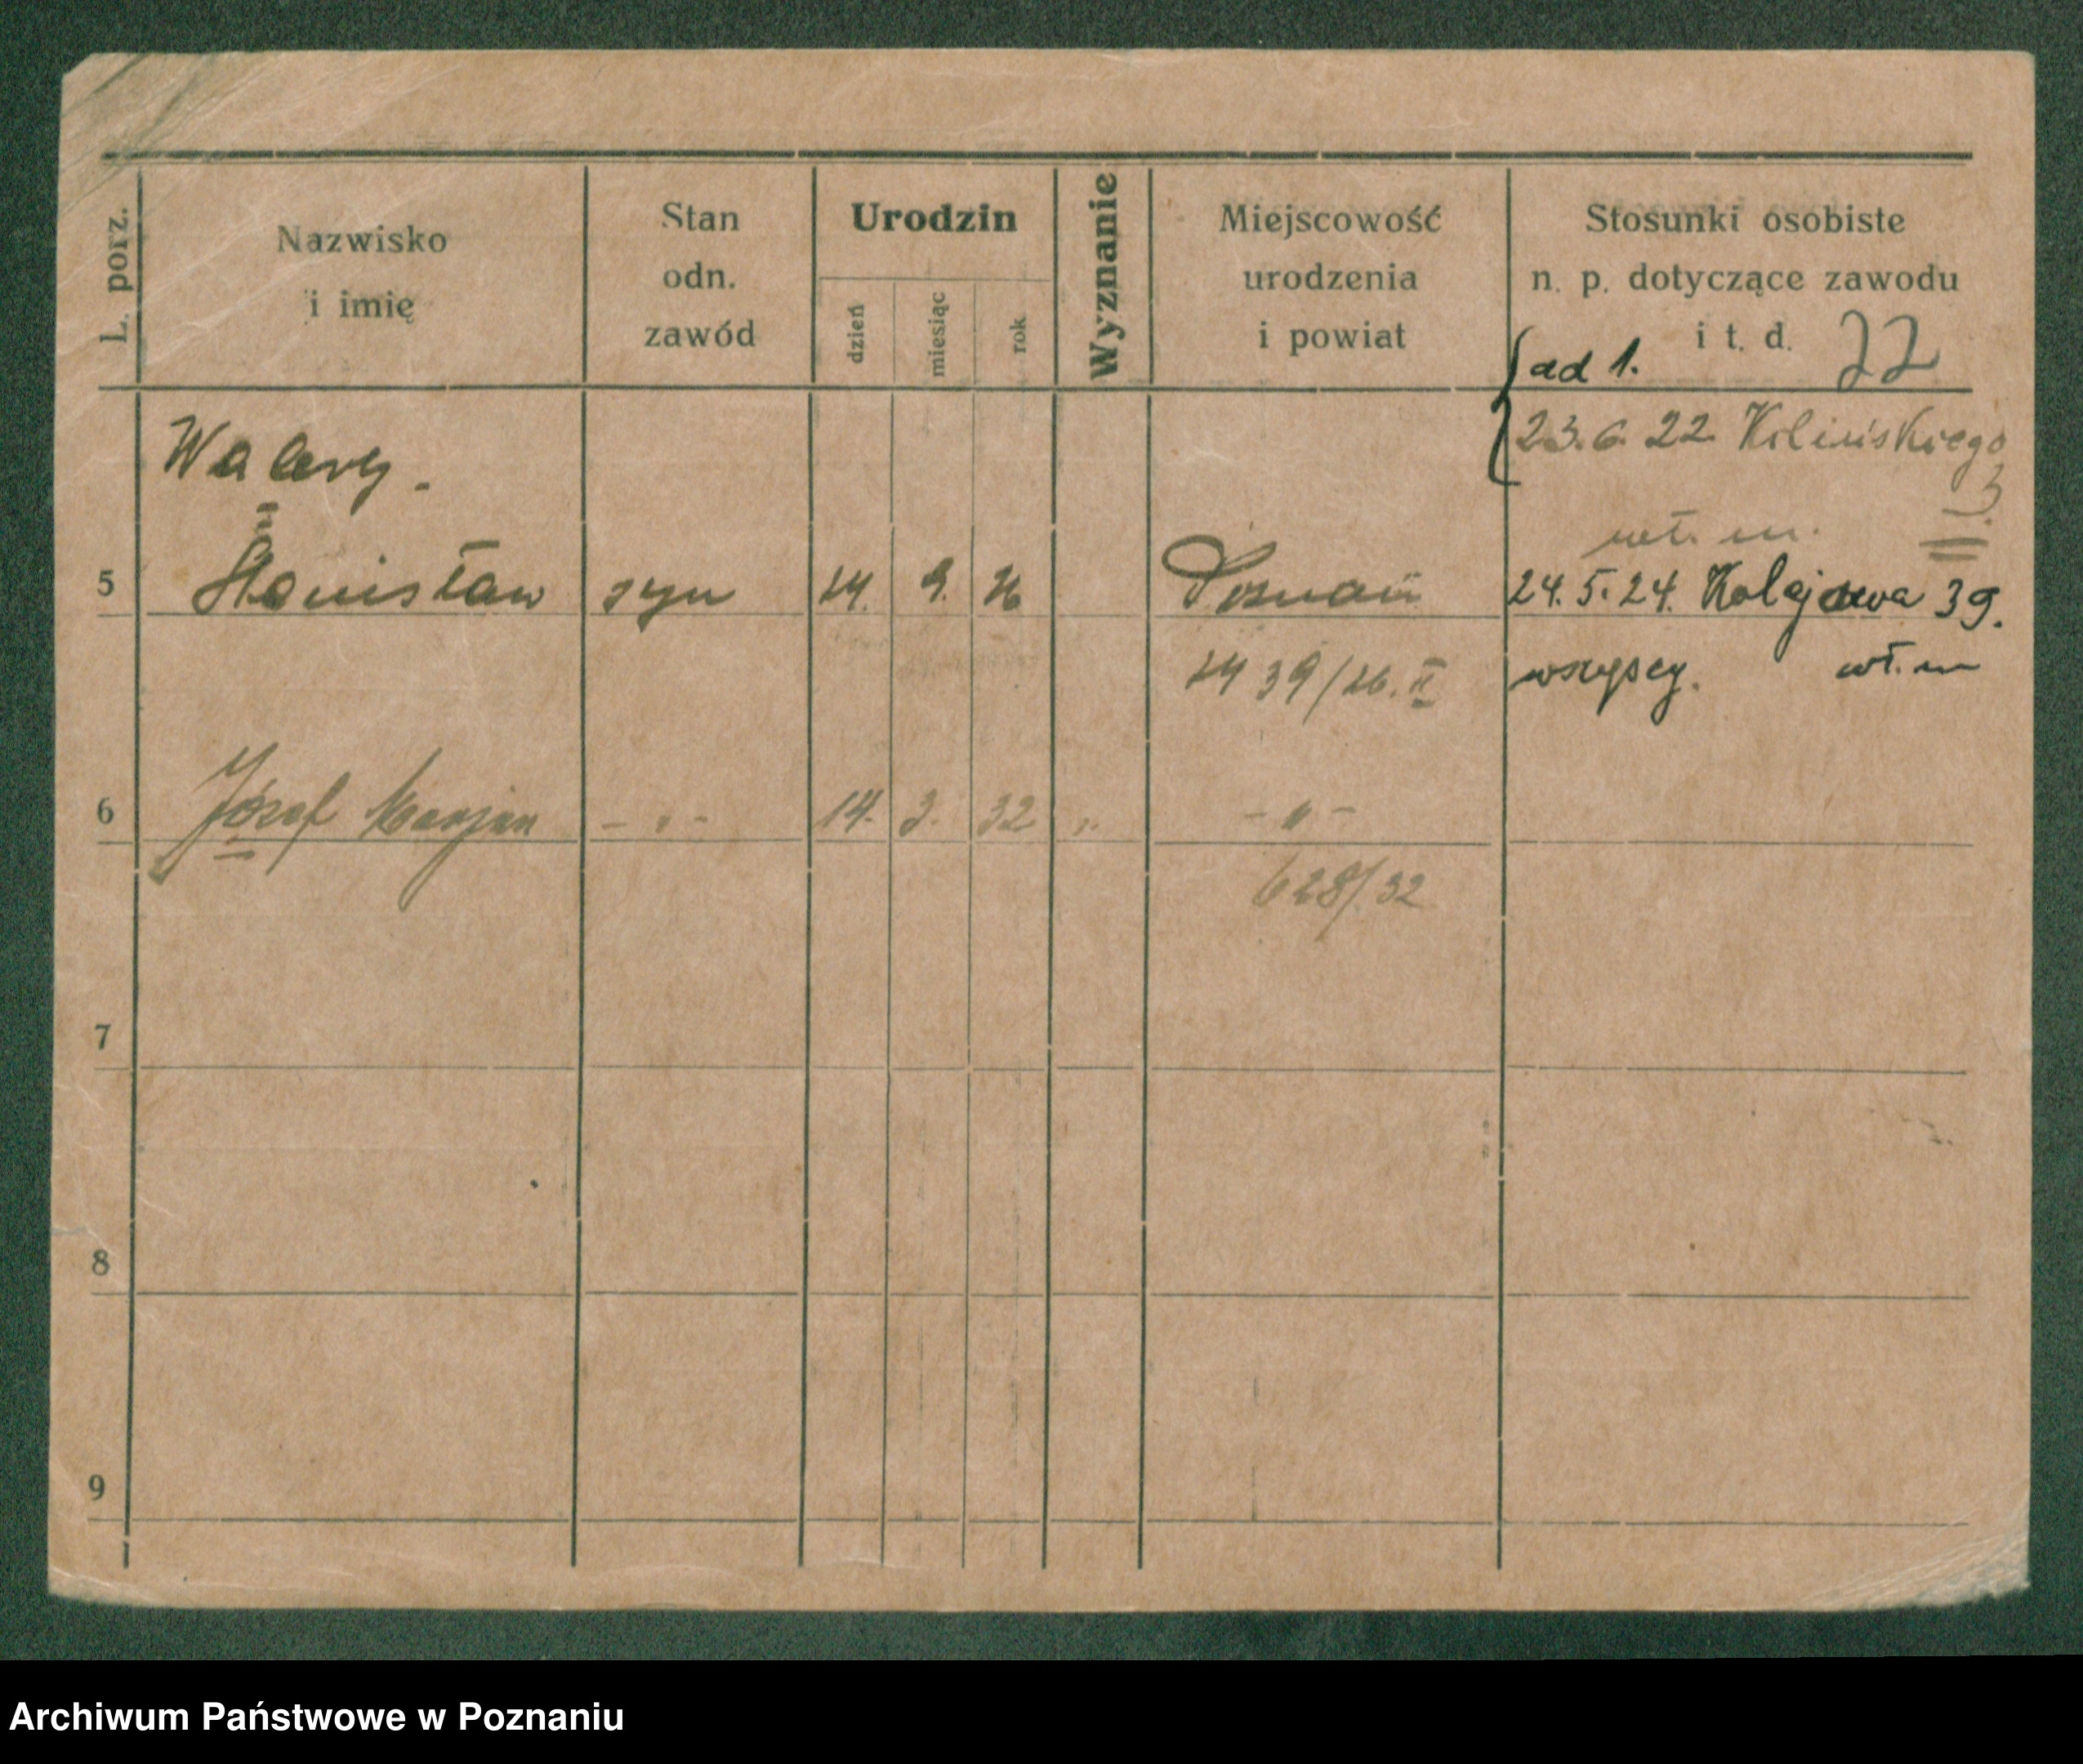 L. porz.
Nazwisko
i imię
Stan
odn.
zawód
Urodzin
dzień
miesiąc
rok
Wyznanie
Miejscowość
urodzenia
i powiat
Stosunki osobiste
n. p. dotyczące zawodu
i t. d. 22
ad 1.
23.6.22 Kilińskiego
3
Walery.
wł. m.
5 Stanisław syn 14. 9. 26 Poznań 24.5.24. Kolejowa 39.
1439/26. II wszyscy. wł. m
6 Józef Marjan - " - 14. 3. 32 " - " -
628/32
7
8
9
Archiwum Państwowe w Poznaniu